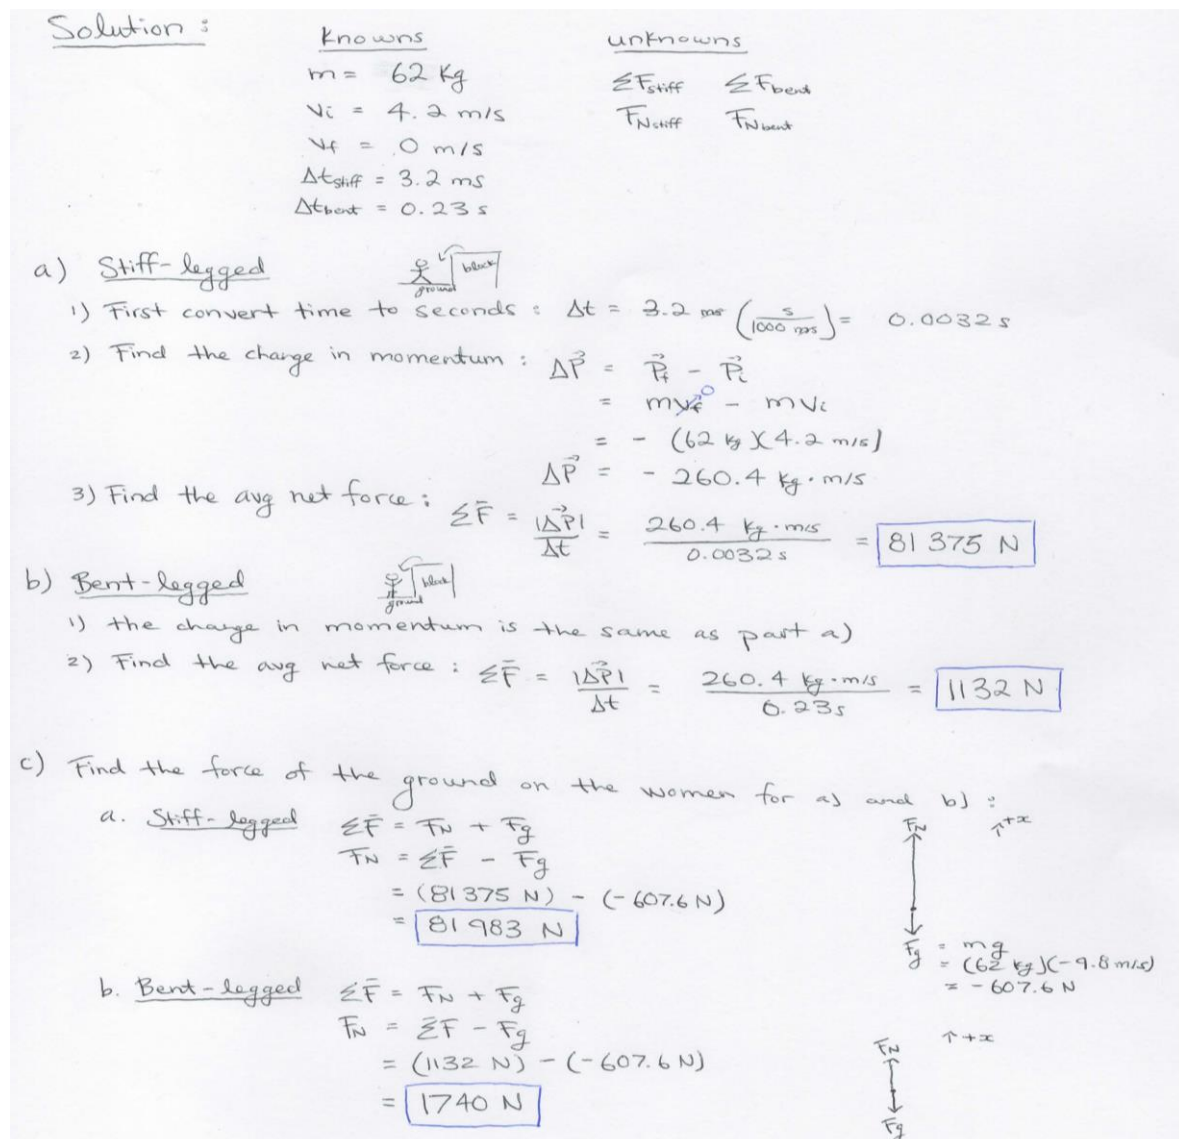 Solution :
Knowns
unknowns
m = 62 Kg
ΣFstiff ΣFbent
Vi = 4.2 m/s
FNstiff FNbent
Vf = 0 m/s
Δtstiff = 3.2 ms
Δtbent = 0.23 s
a) Stiff-legged
block
ground
1) First convert time to seconds : Δt = 3.2 ms (s/1000 ms) = 0.0032 s
2) Find the change in momentum : ΔP⃗ = P⃗f - P⃗i
= mvf⁰ - mvi
= - (62 kg)(4.2 m/s)
ΔP⃗ = - 260.4 kg·m/s
3) Find the avg net force : ΣF̄ = |ΔP⃗|/Δt = 260.4 kg·m/s / 0.0032 s = 81 375 N
b) Bent-legged
block
ground
1) the change in momentum is the same as part a)
2) Find the avg net force : ΣF̄ = |ΔP⃗|/Δt = 260.4 kg·m/s / 0.23s = 1132 N
c) Find the force of the ground on the women for a) and b) :
a. Stiff-legged ΣF̄ = FN + Fg
FN ↑+x
FN = ΣF̄ - Fg
= (81375 N) - (-607.6 N)
= 81 983 N
Fg = mg
= (62 kg)(-9.8 m/s)
= -607.6 N
b. Bent-legged ΣF̄ = FN + Fg
FN = Σ̄F - Fg
FN ↑+x
= (1132 N) - (-607.6 N)
= 1740 N
Fg